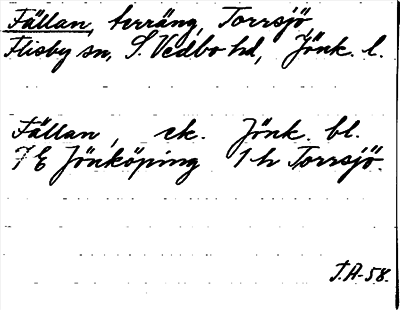 Fällan, terräng, Torrsjö
Flisby sn, S. Vedbo hd, Jönk. l.
Fällan, ek. Jönk. bl.
7 E Jönköping 1 h Torrsjö.
T.A-58.